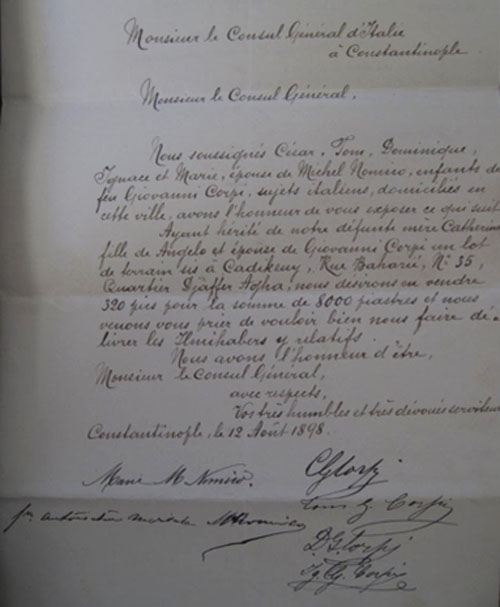 Monsieur le Consul Général d'Italie
à Constantinople.
Monsieur le Consul Général.
Nous soussignés César, Tom, Dominique,
Ignace et Marie, épouse de Michel Nomico, enfants de
feu Giovanni Corpi, sujets italiens, domiciliés en
cette ville, avons l'honneur de vous exposer ce qui suit
Ayant hérité de notre défunte mère Catherine
fille de Angelo et épouse de Giovanni Corpi un lot
de terrain sis à Cadikeuy, Rue Baharié, N° 35,
Quartier Djaffer Agha, nous désirons en vendre
320 pics pour la somme de 8000 piastres et nous
venons vous prier de vouloir bien nous faire dé-
livrer les Ilmihabers y relatifs.
Nous avons l'honneur d'être,
Monsieur le Consul Général,
avec respects,
Vos très humbles et très dévoués serviteurs
Constantinople, le 12 Août 1898.
Marie M Nomico.
CG Corpi
Tom G. Corpi
D. G. Corpi
Ig. G. Corpi